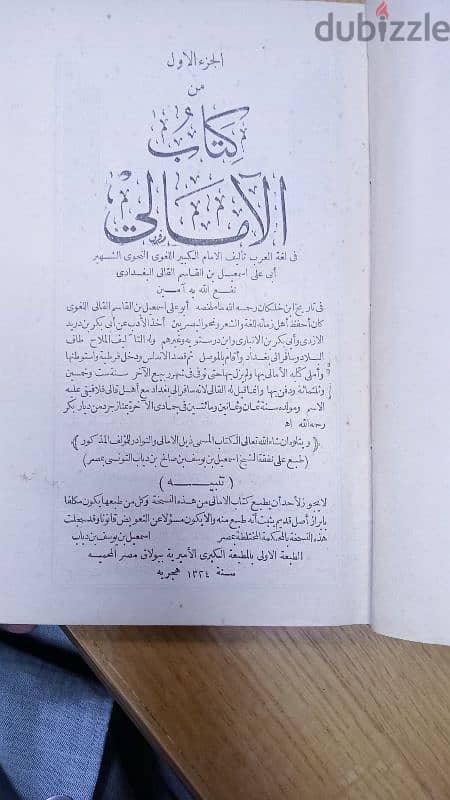 dubizzle
الجزء الاول
من
كتاب
الأمالي
فى لغة العرب تأليف الامام الكبير اللغوى النحوى الشهير
أبى على اسمعيل بن القاسم القالى البغدادى
نفع الله به آمين
فى تاريخ ابن خلكان رحمه الله ما ملخصه أبو على اسمعيل بن القاسم القالى اللغوى
كان أحفظ أهل زمانه للغة والشعر ونحو البصريين أخذ الأدب عن أبى بكر بن دريد
الازدى وأبى بكر بن الانبارى وابن درستويه وغيرهم وله التآليف الملاح طاف
البلاد وسافر الى بغداد وأقام بالموصل ثم قصد الاندلس ودخل قرطبة واستوطنها
وأملى كتابه الأمالى بها ولم يزل بها حتى توفى فى شهر ربيع الآخر سنة ست وخمسين
وثلثمائة ودفن بها وانما قيل له القالى لانه سافر الى بغداد مع أهل قالى قلا فبقى عليه
الاسم ومولده سنة ثمان وثمانين ومائتين فى جمادى الآخرة بمنازجرد من ديار بكر
رحمه الله اه
﴿ ويتلوه ان شاء الله تعالى الكتاب المسمى ذيل الامالى والنوادر للمؤلف المذكور ﴾
(طبع على نفقة الشيخ اسمعيل بن يوسف بن صالح بن دياب التونسى بمصر)
( تنبيه )
لايجوز لأحد أن يطبع كتاب الامالى من هذه النسخة وكل من طبعها يكون مكلفا
بابراز أصل قديم يثبت أنه طبع منه والا يكون مسؤلا عن التعويض قانونا وقد سجلت
هذه النسخة بالمحكمة المختلطة بمصر اسمعيل بن يوسف بن دياب
الطبعة الاولى بالمطبعة الكبرى الأميرية ببولاق مصر المحميه
سنة ١٣٢٤ هجريه